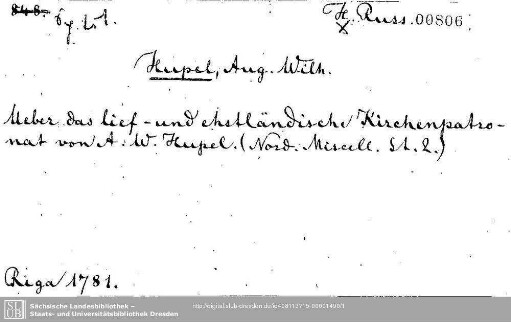 H. Russ. 00806
Hupel, Aug. Wilh.
Ueber das lief- und ehstländische Kirchenpatro-
nat von A. W. Hupel. (Nord. Miscell. St. 2.)
Riga 1781.
Sächsische Landesbibliothek –
Staats- und Universitätsbibliothek Dresden